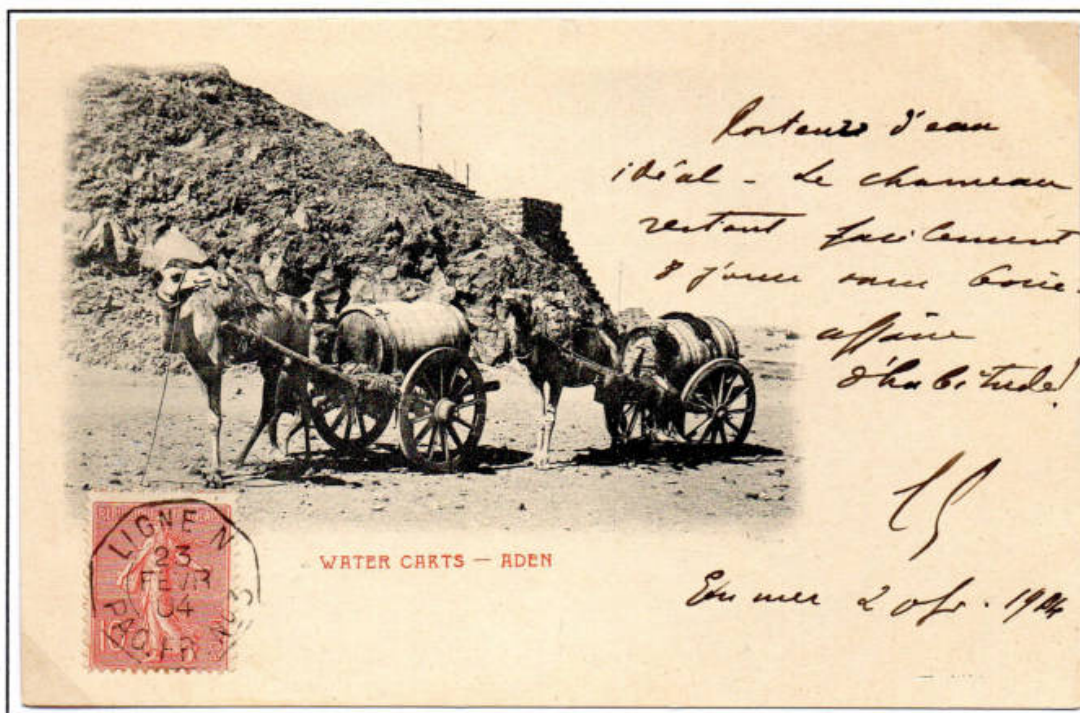 Porteurs d'eau
idéal - Le chameau
restant facilement
8 jours sans boire.
affaire
d'habitude!
En mer 1904
WATER CARTS — ADEN
LIGNE N
23
FEVR
04
PAQ. FR. N° 3
10